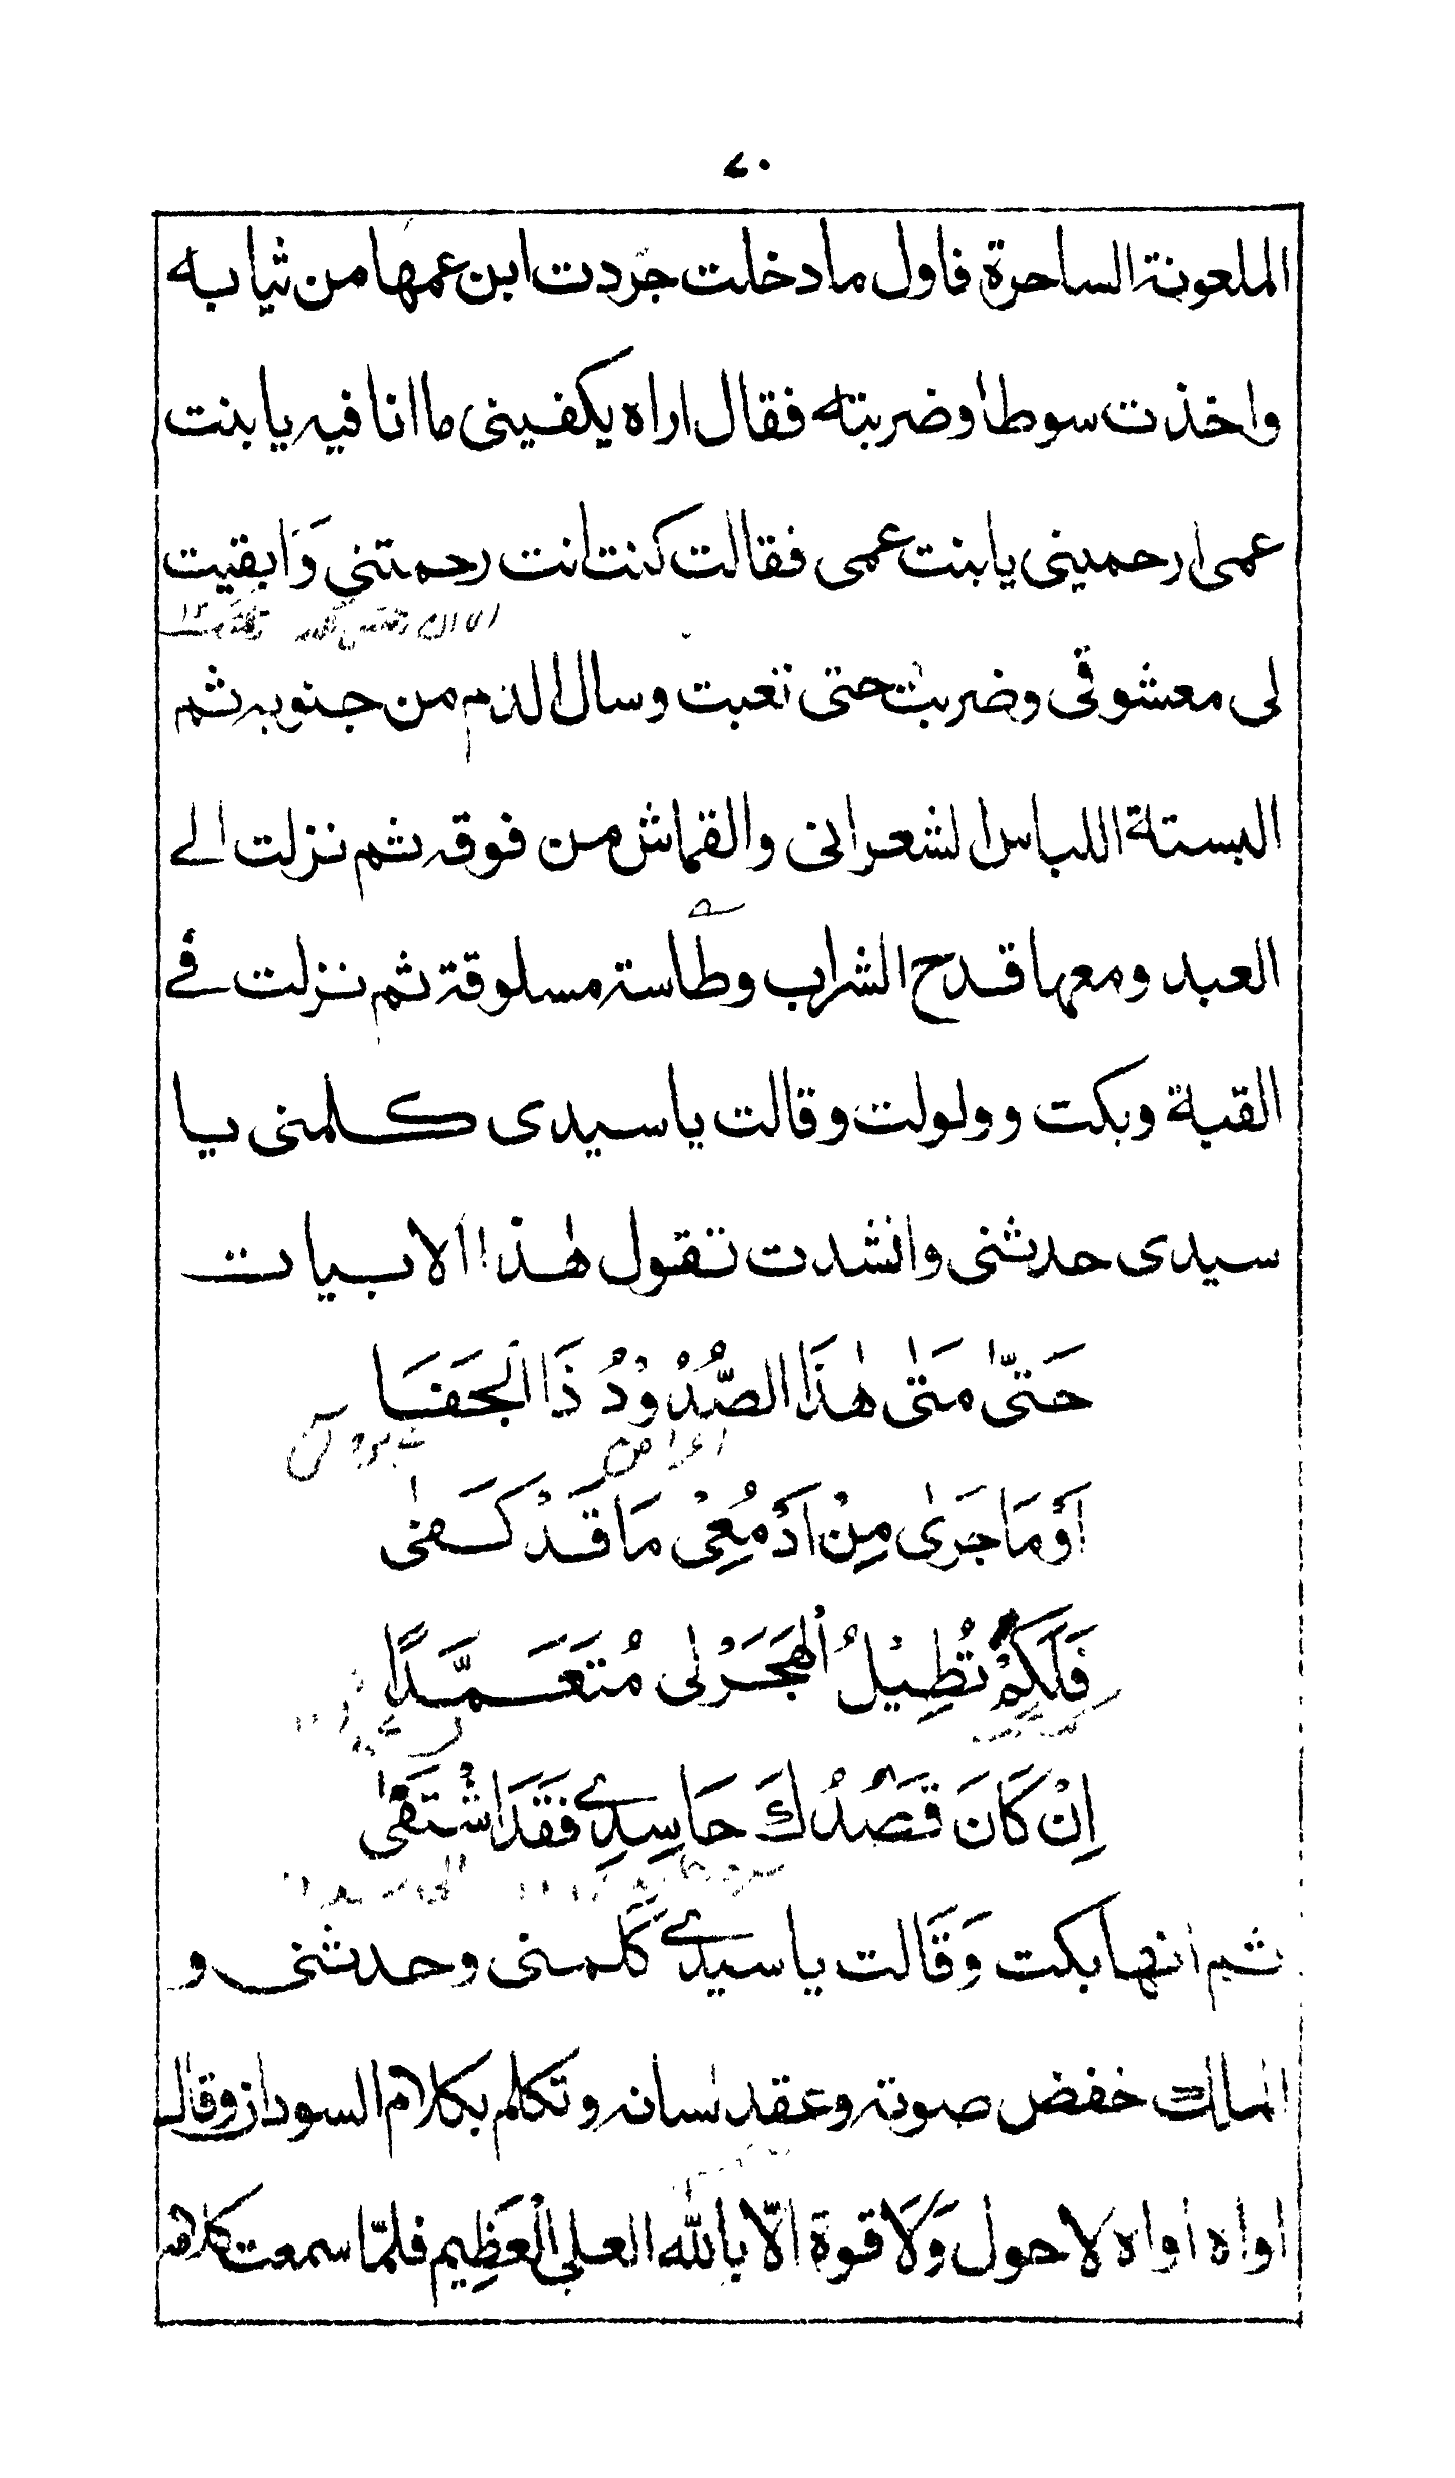 ٧٠
الملعونة الساحرة فاول ما دخلت جردت ابن عمها من ثيابه
واخذت سوطا وضربته فقال اراه يكفيني ما انا فيه يا بنت
عمى ارحمينى يا بنت عمى فقالت كنت انت رحمتنى وَابقيت
لى معشوقى وضربت حتى تعبت وسال الدم من جنوبه ثم
البسته اللباس الشعرانى والقماش من فوقه ثم نزلت الے
العبد ومعها قدح الشراب وطاسة مسلوقة ثم نزلت فے
القبة وبكت وولولت وقالت يا سيدى كلمنى يا
سيدى حدثنى وانشدت تقول هٰذا الابيات
حَتّٰى مَتٰى هٰذَا الصُّدُوْدُ ذَا الْجَفَا
اَوْمَا جَرٰى مِنْ اَدْمُعِىْ مَا قَدْ كَفٰى
فَلَكَمْ تُطِيْلُ الْهَجَرْ لى مُتَعَمَّدًا
اِنْ كَانَ قَصْدُكَ حَاسِدِے فَقَدَاشْتَفٰى
ثم انها بكت وَقَالت يا سيدے كَلمنى وحدثنى و
الملك خفض صوته وعقد لسانه وتكلم بكلام السودان وقال
اواه اواه لا حول وَلَا قوة الّا بالله العلى الْعَظِيم فلمّا سمعت كلامه